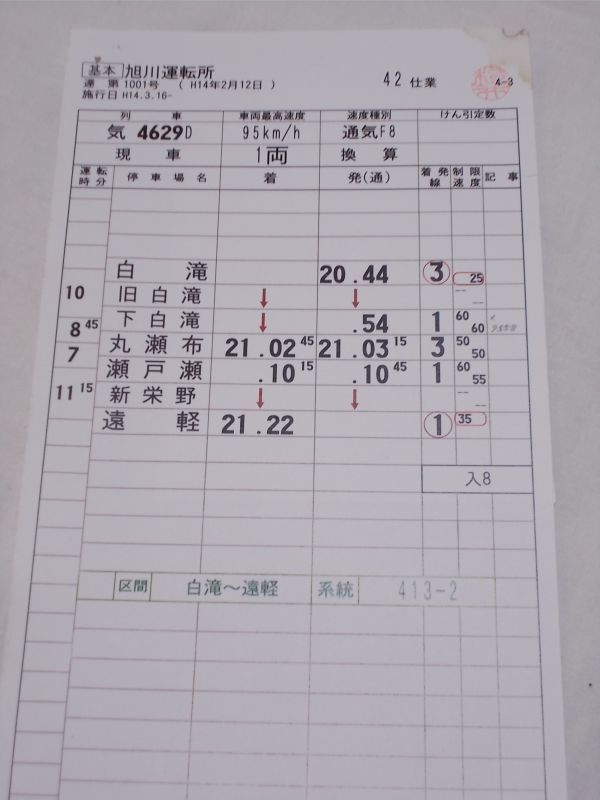 基本 旭川運転所
達 第1001号 ( H14年2月12日 ) 42 仕業 4-3
施行日 H14.3.16-
列 車 車両最高速度 速度種別 けん引定数
気 4629D 95km/h 通気F8
現 車 1両 換 算
運転時分 停車場名 着 発(通) 着発線 制限速度 記事
白滝 20.44 3 25
10
旧白滝 ↓ ↓ -- --
下白滝 ↓ .54 1 60 60
8 45
丸瀬布 21.02 45 21.03 15 3 50 50
7
瀬戸瀬 .10 15 .10 45 1 60 55
11 15
新栄野 ↓ ↓ -- --
遠軽 21.22 1 35
入8
区間 白滝～遠軽 系統 413-2